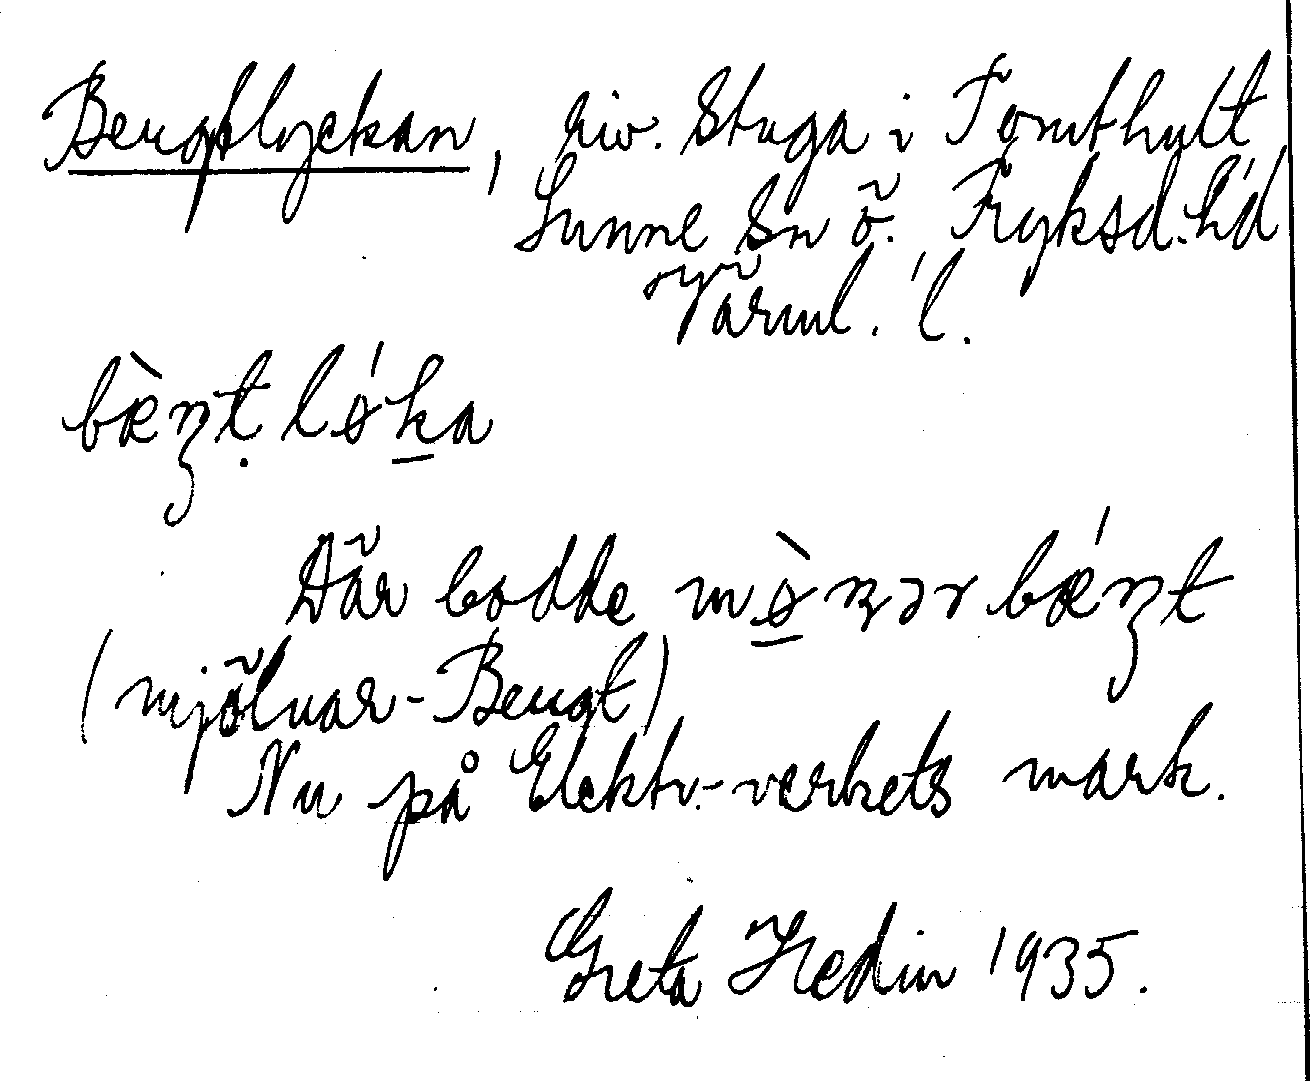 Bengtlyckan, riv. Stuga i Tomthult
Sunne Sn ö. Fryksd. hd
Värml. l.
bæ̀nţ løḱa
Där bodde mø̀nər bǽnt
(mjölnar-Bengt)
Nu på Elektr.-verkets mark.
Greta Hedin 1935.